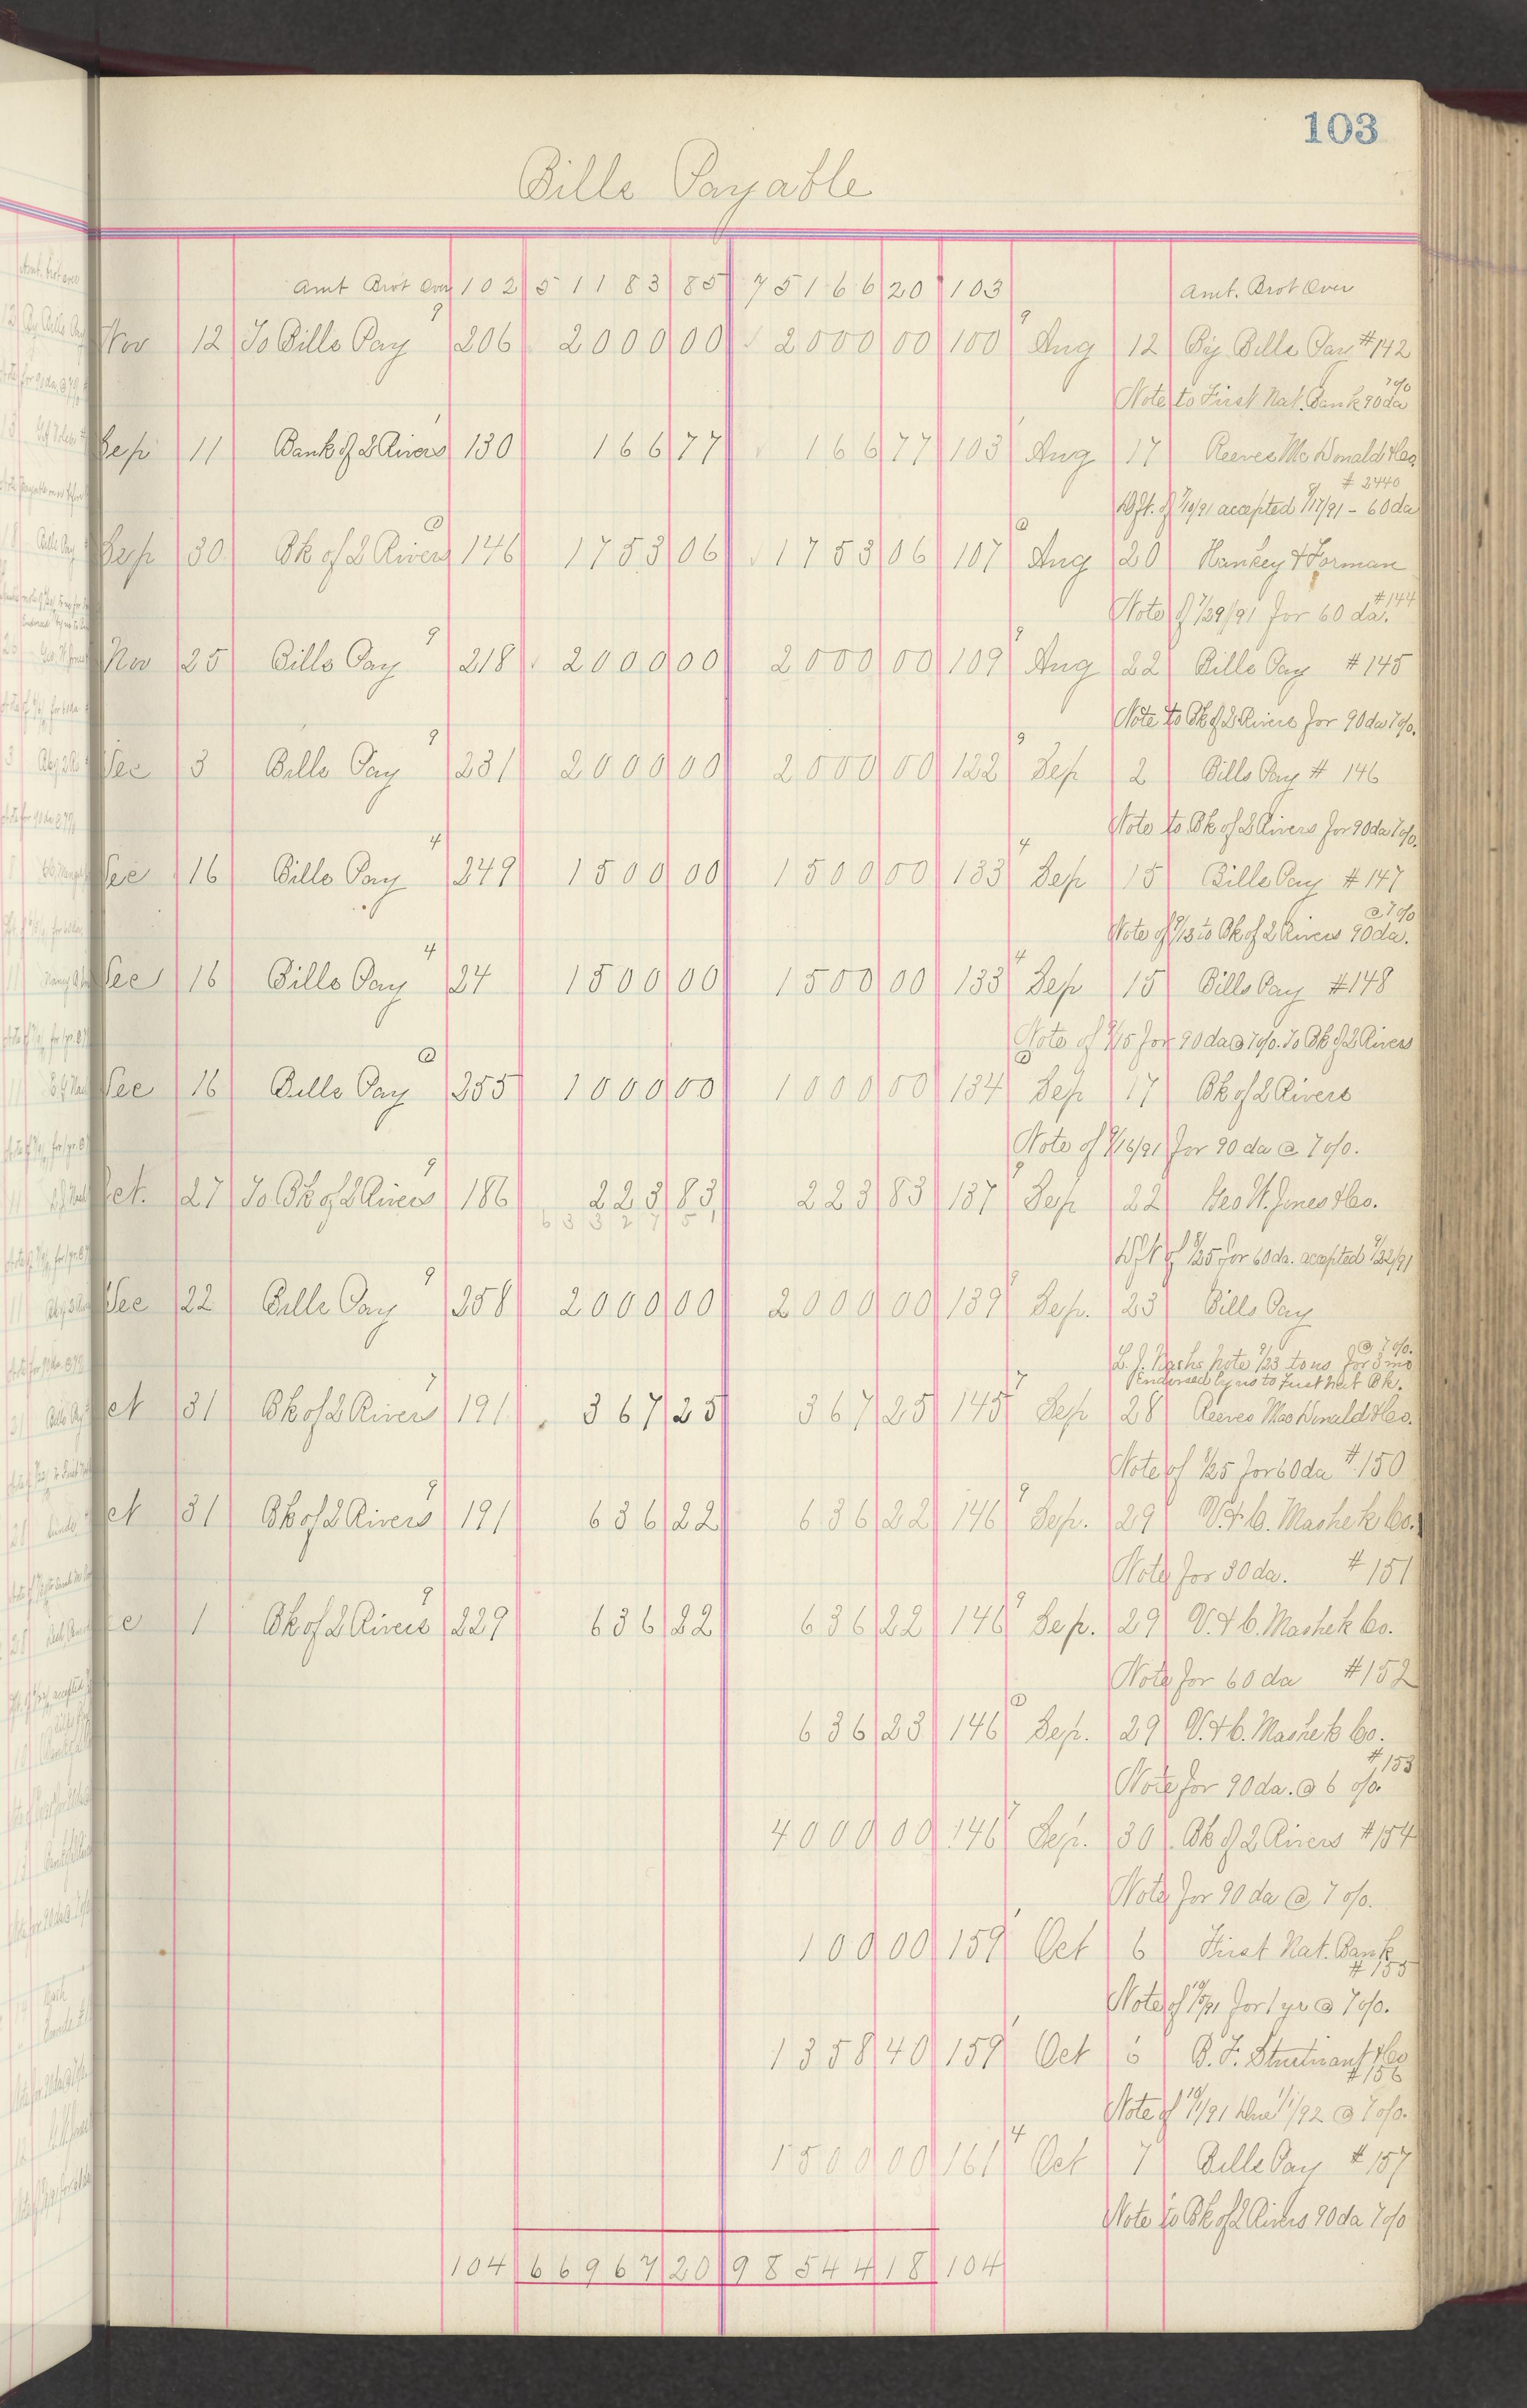 103
Bills Payable
Amt Brot Over 102 51183 85 75166 20 103 Amt. Brot Over
Nov 12 To Bills Pay 9 206 2000 00 2000 00 100 9 Aug 12 By Bills Pay #142
Note to First Nat. Bank 90 da 7%
Sep 11 Bank of 2 Rivers 130 166 77 166 77 103 Aug 17 Reeves McDonald & Co.
# 2440
Dft. of 8/10/91 accepted 8/17/91 - 60 da
Sep 30 Bk of 2 Rivers 146 1753 06 1753 06 107 Aug 20 Hankey & Forman
Note of 7/29/91 for 60 da. #144
Nov 25 Bills Pay 9 218 2000 00 2000 00 109 9 Aug 22 Bills Pay #145
Note to Bk of 2 Rivers for 90 da 7%.
Dec 3 Bills Pay 9 231 2000 00 2000 00 122 9 Sep 2 Bills Pay # 146
Note to Bk of 2 Rivers for 90 da 7%.
Dec 16 Bills Pay 4 249 1500 00 1500 00 133 4 Sep 15 Bills Pay #147
@ 7%
Note of 9/13 to Bk of 2 Rivers 90 da.
Dec 16 Bills Pay 4 24 1500 00 1500 00 133 4 Sep 15 Bills Pay #148
Note of 9/15 for 90 da @ 7%. To Bk of 2 Rivers
Dec 16 Bills Pay 255 1000 00 1000 00 134 Sep 17 Bk of 2 Rivers
Note of 9/16/91 for 90 da @ 7%.
Oct. 27 To Bk of 2 Rivers 9 186 223 83 223 83 137 9 Sep 22 Geo W. Jones & Co.
63327 51
Dft of 8/25 for 60 da. accepted 9/22/91
Dec 22 Bills Pay 9 258 2000 00 2000 00 139 9 Sep. 23 Bills Pay
@ 7%.
L. J. Nash's note 9/23 to us for 3 mo
Endorsed by us to First Nat Bk.
Oct 31 Bk of 2 Rivers 7 191 367 25 367 25 145 7 Sep 28 Reeves MacDonald & Co.
Note of 8/25 for 60 da # 150
Oct 31 Bk of 2 Rivers 9 191 636 22 636 22 146 9 Sep. 29 V. & C. Mashek Co.
Note for 30 da. # 151
Dec 1 Bk of 2 Rivers 9 229 636 22 636 22 146 9 Sep. 29 V. & C. Mashek Co.
Note for 60 da #152
636 23 146 Sep. 29 V. & C. Mashek Co.
#153
Note for 90 da. @ 6 %.
4000 00 146 7 Sep. 30 Bk of 2 Rivers #154
Note for 90 da @ 7 %.
100 00 159 Oct 6 First Nat. Bank
# 155
Note of 10/5/91 for 1 yr @ 7%.
1358 40 159 Oct 6 B. F. Sturtivant & Co
#156
Note of 10/1/91 due 1/1/92 @ 7%.
1500 00 161 4 Oct 7 Bills Pay # 157
Note to Bk of 2 Rivers 90 da 7%
104 66967 20 98544 18 104